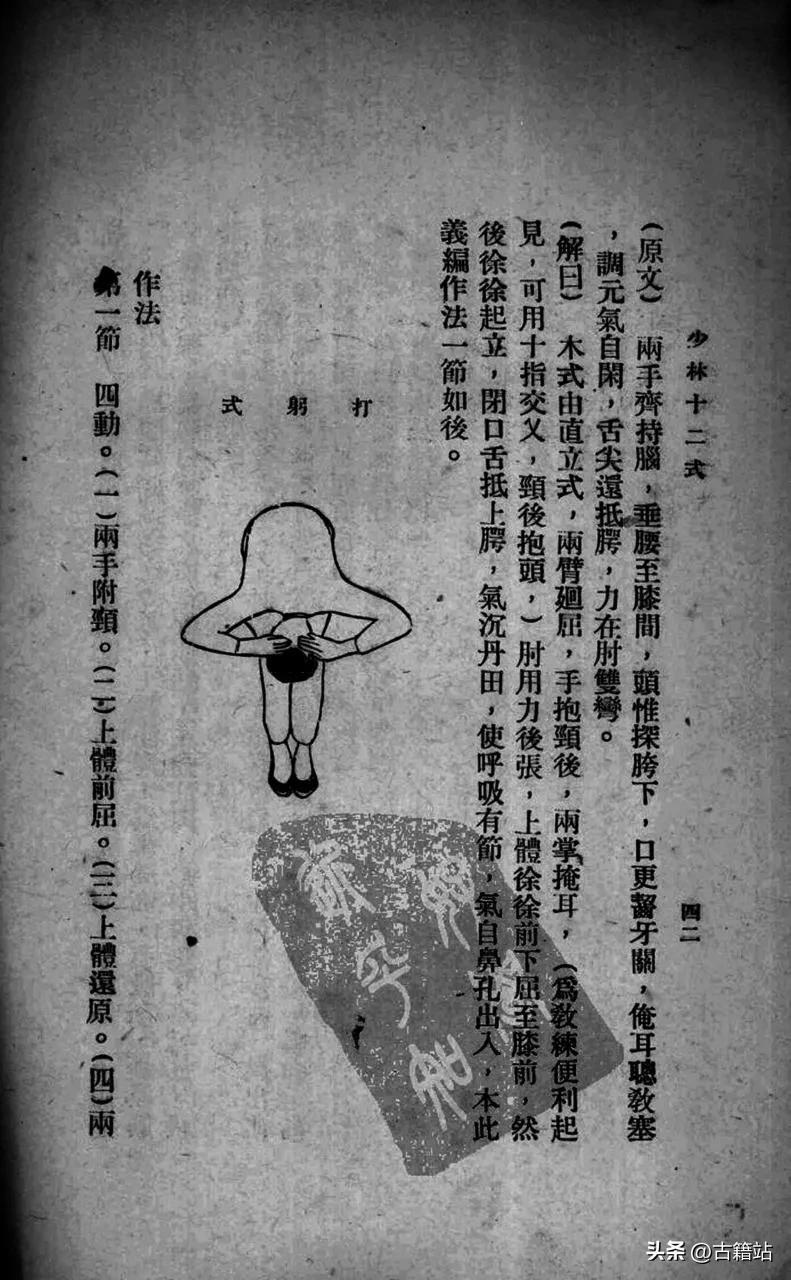 少林十二式
四二
(原文) 兩手齊持腦，垂腰至膝間，頭惟探胯下，口更齧牙關，俺耳聰教塞
，調元氣自閑，舌尖還抵腭，力在肘雙彎。
(解曰) 木式由直立式，兩臂廻屈，手抱頸後，兩掌掩耳，(爲教練便利起
見，可用十指交叉，頸後抱頭，)肘用力後張，上體徐徐前下屈至膝前，然
後徐徐起立，閉口舌抵上腭，氣沉丹田，使呼吸有節，氣自鼻孔出入，本此
義編作法一節如後。
打躬式
作法
第一節 四動。(一)兩手附頸。(二)上體前屈。(三)上體還原。(四)兩
头条 @古籍站